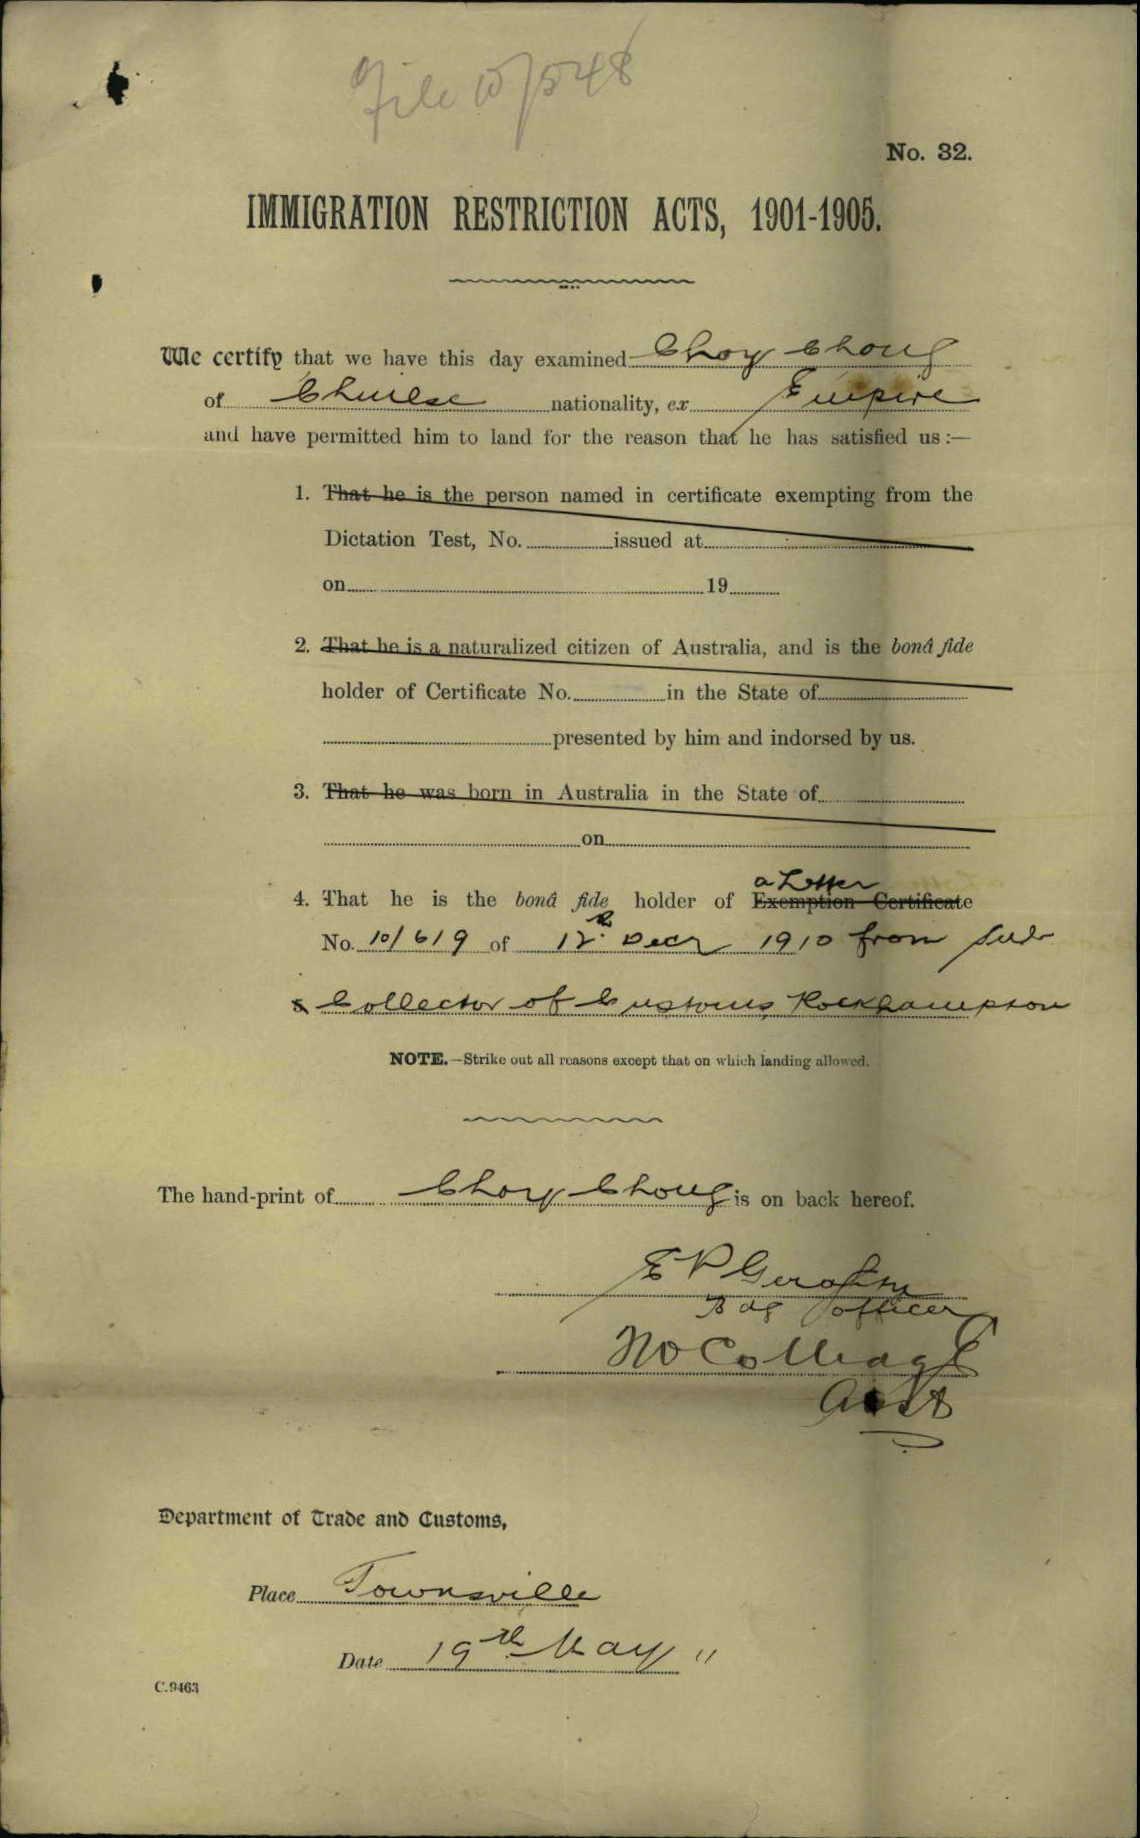 File 10/548
No. 32.
IMMIGRATION RESTRICTION ACTS, 1901-1905.
We certify that we have this day examined Choy Chong
of Chinese nationality, ex Empire
and have permitted him to land for the reason that he has satisfied us :—
1. That he is the person named in certificate exempting from the
Dictation Test, No. issued at
on 19
2. That he is a naturalized citizen of Australia, and is the bonâ fide
holder of Certificate No. in the State of
presented by him and indorsed by us.
3. That he was born in Australia in the State of
on
a Letter
4. That he is the bonâ fide holder of Exemption Certificate
No. 10/619 of 12th Decr 1910 from Sub
Collector of Customs Rockhampton
NOTE.—Strike out all reasons except that on which landing allowed.
The hand-print of Choy Chong is on back hereof.
E P
Bdg Officer
Department of Trade and Customs,
Place Townsville
Date 19th May 11
C.9463